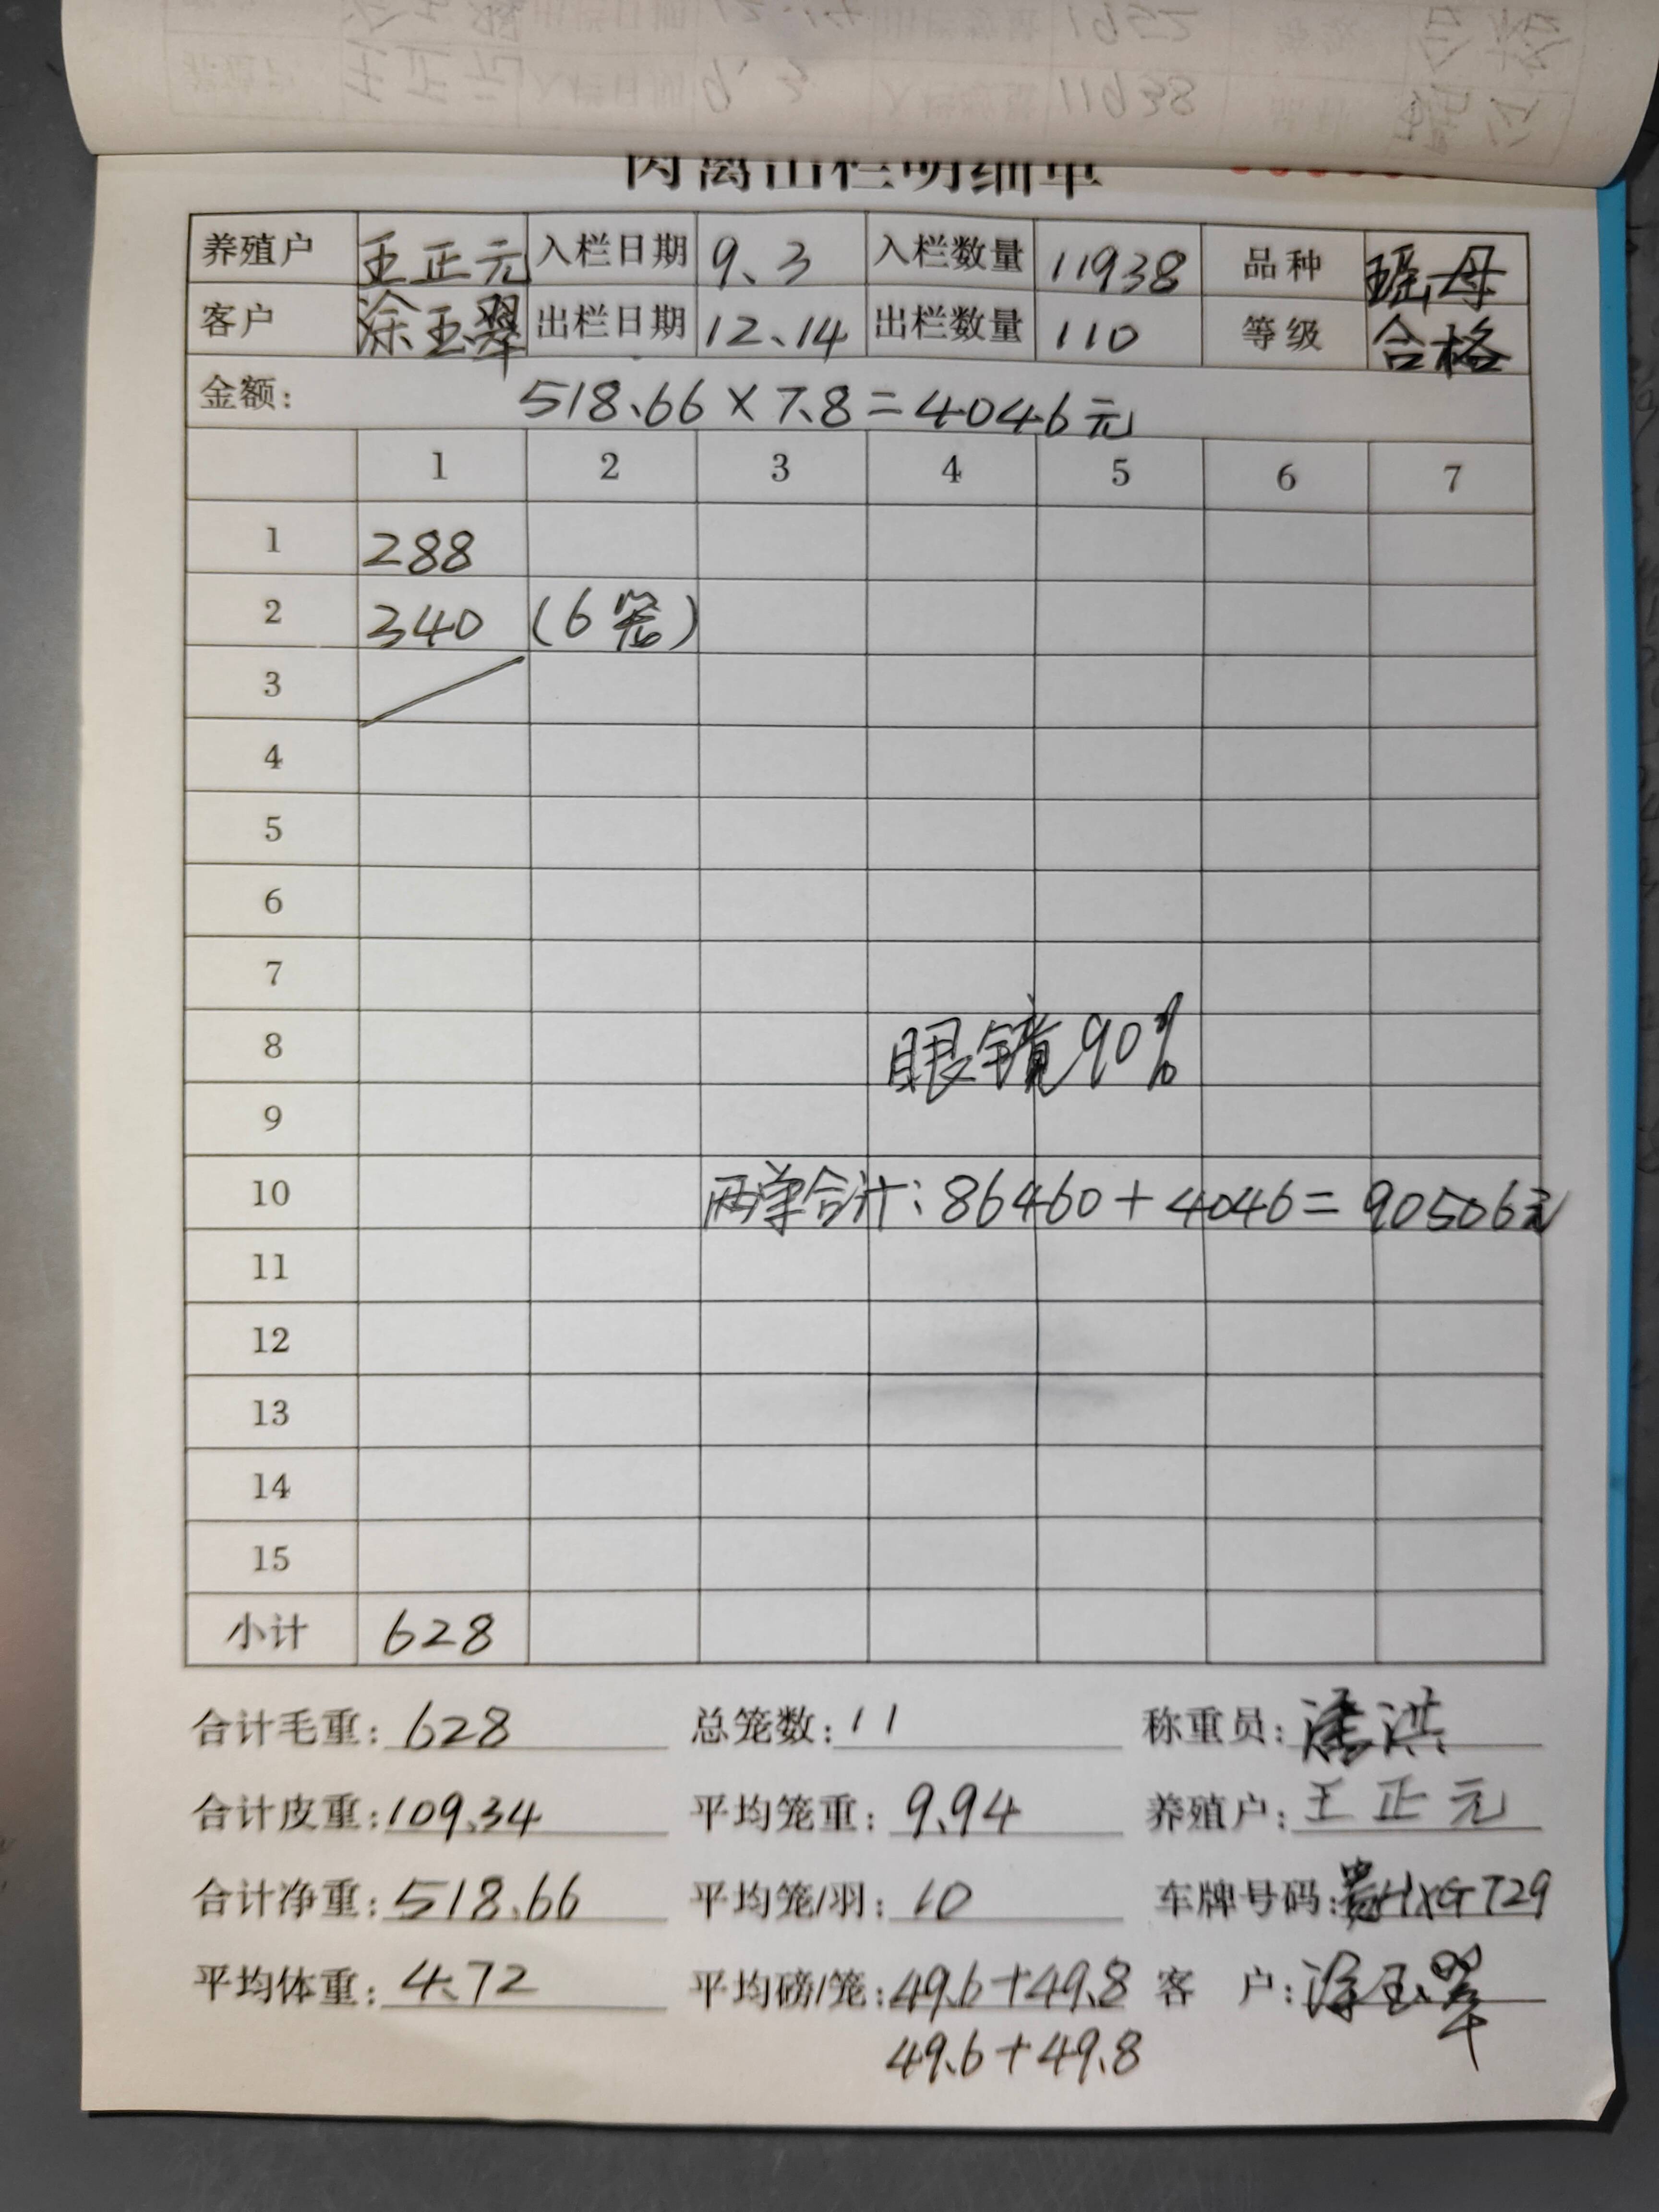 肉禽出栏明细单
养殖户 王正元 入栏日期 9、3 入栏数量 11938 品种 瑶母
客户 涂玉翠 出栏日期 12、14 出栏数量 110 等级 合格
金额: 518.66×7.8=4046元
1 2 3 4 5 6 7
1 288
2 340 (6笼)
3
4
5
6
7
8 眼镜90%
9
10 两单合计:86460+4046=90506元
11
12
13
14
15
小计 628
合计毛重: 628 总笼数: 11 称重员: 洪
合计皮重: 109.34 平均笼重: 9.94 养殖户: 王正元
合计净重: 518.66 平均笼/羽: 10 车牌号码: 贵HXG729
平均体重: 4.72 平均磅/笼: 49.6+49.8 客 户: 涂玉翠
49.6+49.8